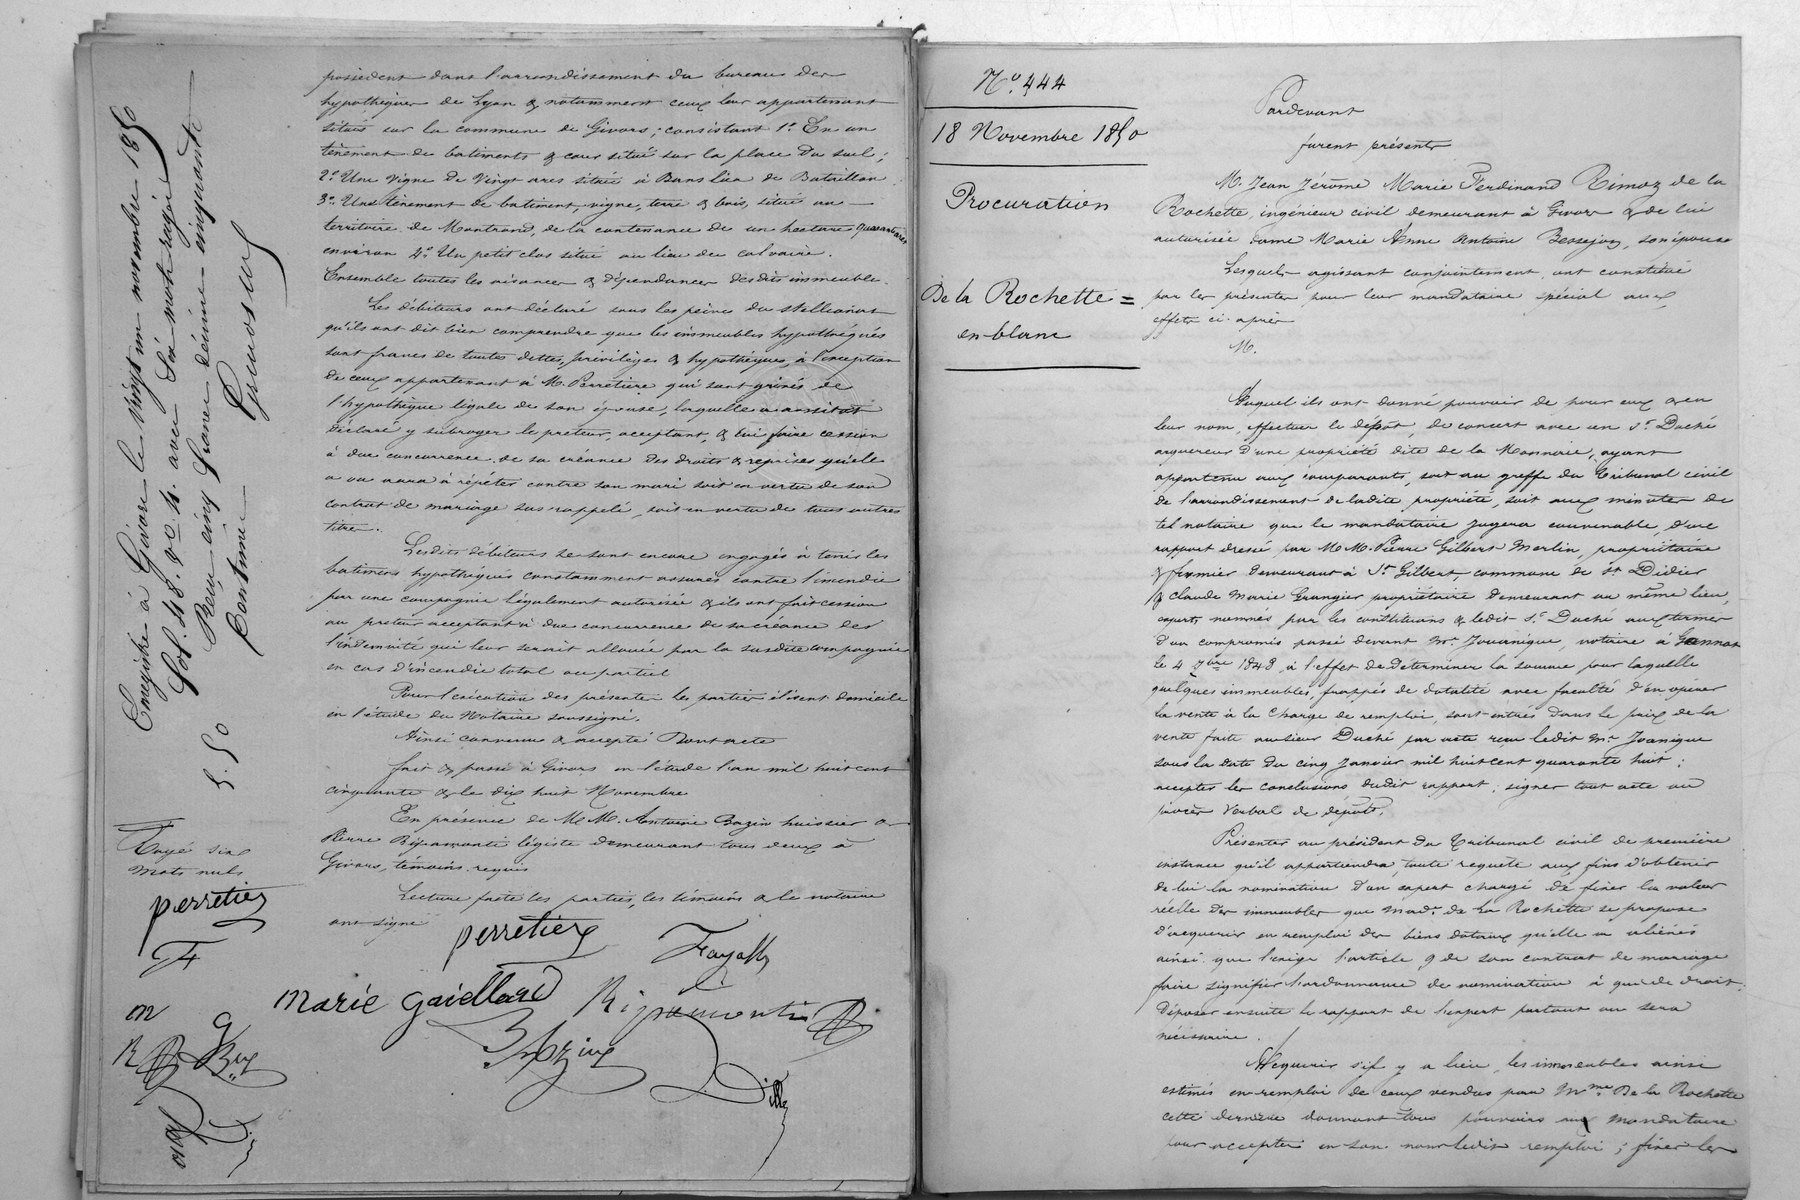 possèdent dans l'arrondissement du bureau des
hypothèques de Lyon & notamment ceux leur appartenant
situés sur la commune de Givors ; consistant 1° En un
tènement de batiments & cour situé sur la place du suel ;
2° Une vigne de vingt ares située à Bans lieu de Bataillon
3° Une tènement de batiment, vigne, terre & bois, situé au
territoire de Montrond, de la contenance de un hectare quarante ares
environ 4° Un petit clos situé au lieu du calvaire.
Ensemble toutes les aisances & dépendances desdits immeubles.
Les débiteurs ont déclaré sous les peines du stellionat
qu'ils ont dit bien comprendre que les immeubles hypothéqués
sont francs de toutes dettes, privilèges & hypothèques, à l'exception
de ceux appartenant à M. Perretière qui sont grèvés de
l'hypothèque légale de son épouse, laquelle a aussitot
déclaré y subroger le prêteur, acceptant, & lui faire cession
à due concurrence de sa créance des droits & reprises qu'elle
a ou aura à répéter contre son mari soit en vertu de son
contrat de mariage sus rappelé, soit en vertu de tous autres
titres.
Lesdits débiteurs se sont encore engagés à tenir les
batimens hypothéqués constamment assurés contre l'incendie
par une compagnie légalement autorisée & ils ont fait cession
au preteur acceptant à due concurrence de sa créance de
l'indemnité qui leur serait allouée par la susdite compagnie
en cas d'incendie total ou partiel
Pour l'exécution des présentes les parties élisent domicile
en l'étude du Notaire soussigné.
Ainsi convenu & accepté Dont acte
fait & passé à Givors en l'étude l'an mil huit cent
cinquante & le dix huit Novembre
En présence de M.M. Antoine Bazin huissier &
Pierre Ripamonti légiste demeurant tous deux à
Givors, témoins requis
Lecture faite les parties, les témoins & le notaire
ont signé
perretier
Fayolle
Marie Gaiellard
Ripamonti
Bazin
Enregistré à Givors le vingt un novembre 1850
fol. 48. v° c. 4. avec six mots rayés
Reçu cinq francs décime cinquante
centimes
5.50
Rayé six
mots nuls
perretier
F
m g
R
N° 444
18 Novembre 1850
Procuration
De la Rochette =
en blanc
Pardevant
furent présents
M. Jean Jérôme Marie Ferdinand Rimoz de la
Rochette, ingénieur civil demeurant à Givors & de lui
autorisée dame Marie Anne Antoine Bessejon, son épouse
Lesquels agissant conjointement, ont constitué
par les présentes pour leur mandataire spécial aux
effets ci-après
M.
Auquel ils ont donné pouvoir de pour eux & en
leur nom, effectuer le dépôt, de concert avec un Sr. Duché
acquereur d'une propriété dite de la Monnaie, ayant
appartenu aux comparants, soit au greffe du Tribunal civil
de l'arrondissement de ladite propriété, soit aux minutes de
tel notaire que le mandataire jugera convenable, d'une
rapport dressé par M.M. Pierre Gilbert Merlin, propriétaire
& fermier demeurant à St Gilbert, commune de St Didier
& Claude Marie Grangier propriétaire demeurant au même lieu,
experts nommés par les constituans & ledit Sr. Duché aux termes
d'un compromis passé devant Me Jouanique, notaire à Gannat
le 4 7bre 1848, à l'effet de déterminer la somme pour laquelle
quelques immeubles, frappés de dotalité avec faculté d'en opérer
la vente à la charge de remploi, sont entrés dans le prix de la
vente faite au sieur Duché par acte reçu ledit Me Joanique
sous la date du cinq janvier mil huit cent quarante huit ;
accepter les conclusions dudit rapport ; signer tout acte ou
procès verbal de dépôts.
Présenter au président du Tribunal civil de première
instance qu'il appartiendra, toute requête aux fins d'obtenir
de lui la nomination d'un expert chargé de fixer la valeur
réelle des immeubles que Made. de la Rochette se propose
d'acquerir en remploi des biens dotaux qu'elle a aliénés
ainsi que l'exige l'article 9 de son contrat de mariage
faire signifier l'ordonnance de nomination à qui de droit,
Déposer ensuite le rapport de l'expert partout où sera
nécessaire.
Acquerir s'il y a lieu, les immeubles ainsi
estimés en remploi de ceux vendus par Mme De la Rochette
cette dernière donnant tous pouvoirs au mandataire
pour accepter en son nom ledit remploi ; fixer les